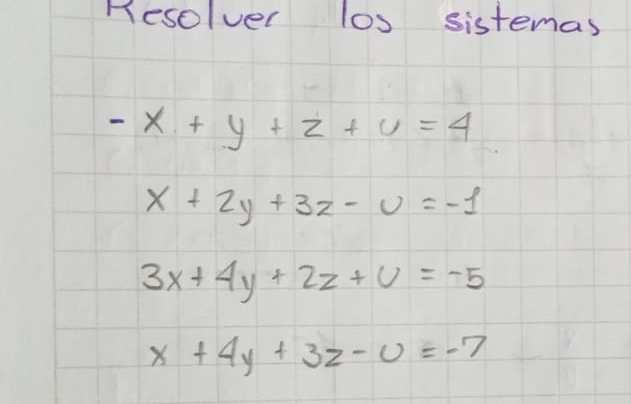 Resolver los sistemas
- x + y + z + u = 4
x + 2y + 3z - u = -1
3x + 4y + 2z + u = -5
x + 4y + 3z - u = -7